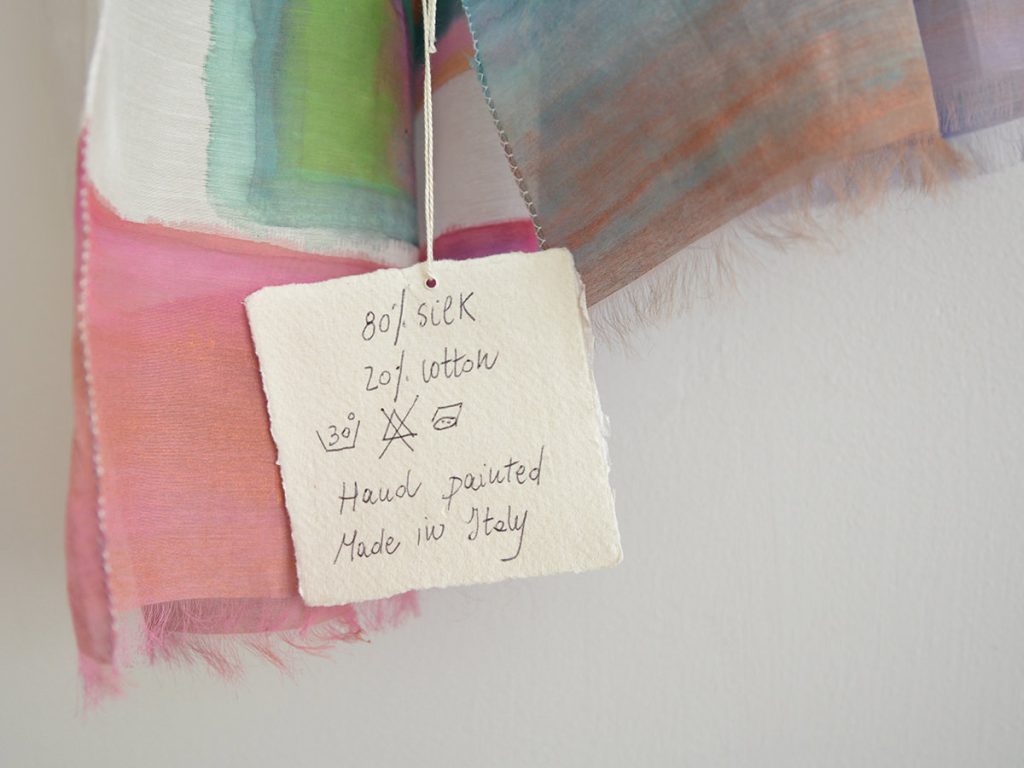 80% silk
20% cotton
30°
Hand painted
Made in Italy